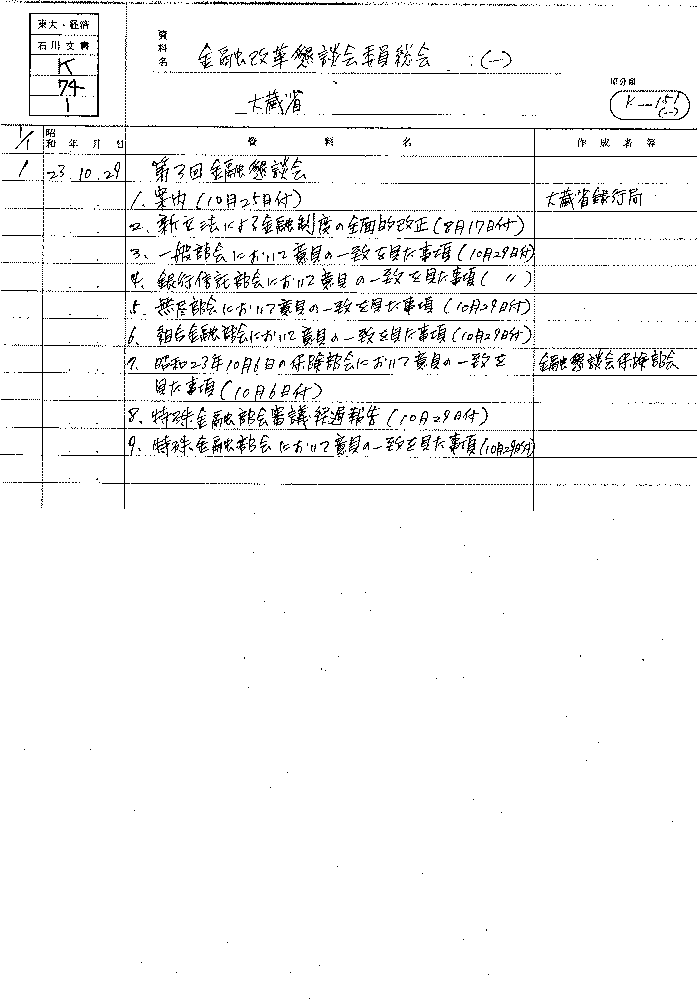 東大・経済
石川文書
K
74
1
資料名
金融改革懇談会委員総会 (一)
大蔵省
旧分類
K-151
(一)
1/1
昭和 年 月 日
資 料 名
作 成 者 等
1 23.10.29 第3回金融懇談会
1. 案内(10月25日付) 大蔵省銀行局
2. 新立法による金融制度の全面的改正(8月17日付)
3. 一般部会において意見の一致を見た事項(10月29日付)
4. 銀行信託部会において意見の一致を見た事項( 〃 )
5. 無尽部会において意見の一致を見た事項(10月29日付)
6. 組合金融部会において意見の一致を見た事項(10月29日付)
7. 昭和23年10月6日の保険部会において意見の一致を 金融懇談会保険部会
見た事項(10月6日付)
8. 特殊金融部会審議経過報告(10月29日付)
9. 特殊金融部会において意見の一致を見た事項(10月29日付)